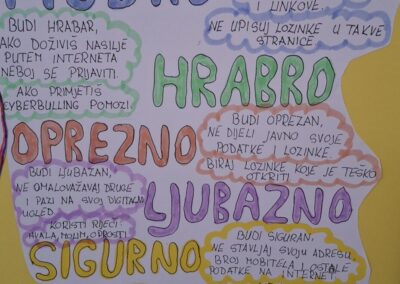 I LINKOVE.
NE UPISUJ LOZINKE U TAKVE
STRANICE
BUDI HRABAR,
AKO DOŽIVIŠ NASILJE
PUTEM INTERNETA
NEBOJ SE PRIJAVITI.
AKO PRIMJETIŠ
CYBERBULLING POMOZI.
HRABRO
OPREZNO
BUDI OPREZAN,
NE DIJELI JAVNO SVOJE
PODATKE I LOZINKE.
BIRAJ LOZINKE KOJE JE TEŠKO
OTKRITI.
BUDI LJUBAZAN,
NE OMALOVAŽAVAJ DRUGE
I PAZI NA SVOJ DIGITALNI
UGLED.
KORISTI RIJEČI
HVALA, MOLIM, OPROSTI
LJUBAZNO
SIGURNO
BUDI SIGURAN,
NE STAVLJAJ SVOJU ADRESU,
BROJ MOBITELA I OSTALE
PODATKE NA INTERNET.